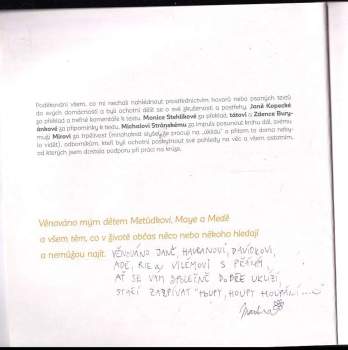 Poděkování všem, co mi nechali nahlédnout prostřednictvím hovorů nebo psaných textů
do svých domácností a byli ochotni dělit se o své zkušenosti a postřehy. Janě Kopecké
za překlad a milné komentáře k textu, Monice Stehlíkové za překlad, tátovi a Zdence Bury-
ánkové za připomínky k textu, Michalovi Stránskému za impuls posunout knihu dál, svému
muži Mirovi za trpělivost (mnohokrát slyšel, že pracuji na „úklidu“ a přitom to doma neby-
lo vidět), odborníkům, kteří byli ochotni poskytnout své pohledy na věc a všem ostatním,
od kterých jsem dostala podporu při práci na knize.
Věnováno mým dětem Metůdkovi, Maye a Medě
a všem těm, co v životě občas něco nebo někoho hledají
a nemůžou najít.
VĚNOVÁNO JANĚ, HAVRANOVI, DAVÍDKOVI,
VILÉMOVI S
AŤ SE VÁM SPOLEČNĚ DOBŘE UKLÍZÍ,
STAČÍ ZAZPÍVAT "HOUPY, HOUPY HOUPÁNÍ..."
Martina